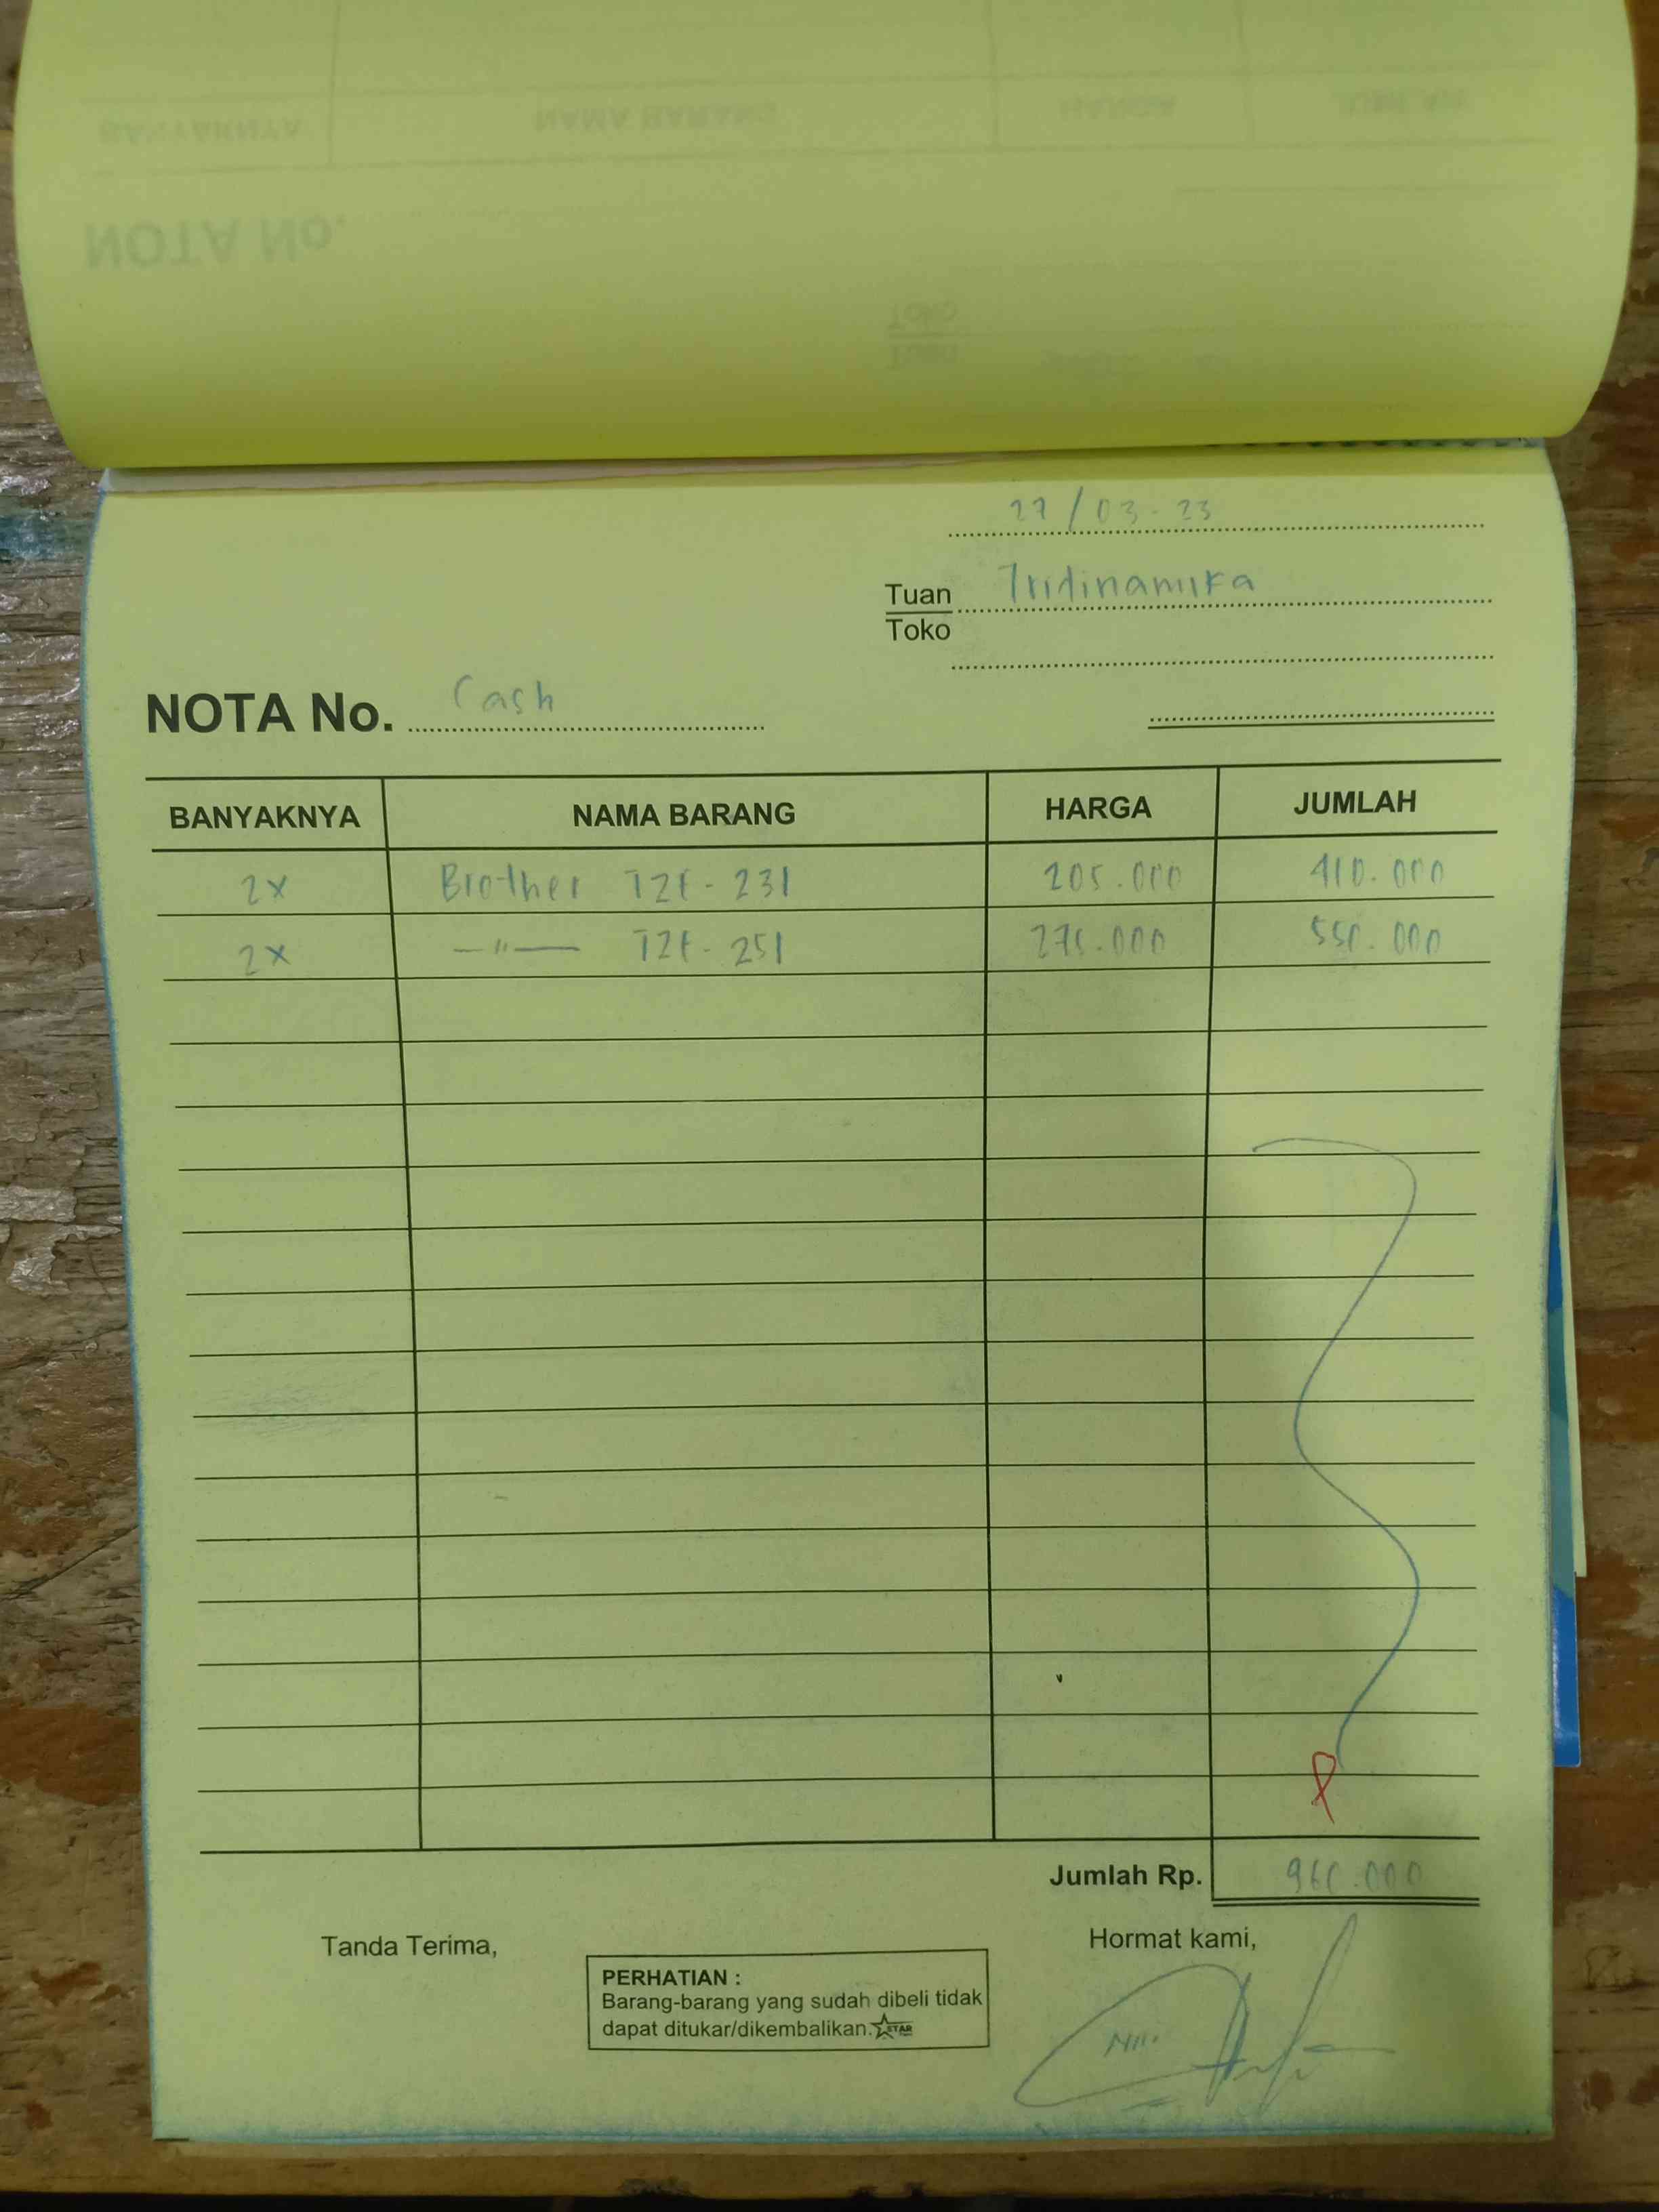 27/03-23
Tuan Tridinamika
Toko
NOTA No. Cash
BANYAKNYA NAMA BARANG HARGA JUMLAH
2x Brother TZE-231 205.000 410.000
2x —"— TZE-251 275.000 550.000
Jumlah Rp. 960.000
Tanda Terima, Hormat kami,
PERHATIAN :
Barang-barang yang sudah dibeli tidak
dapat ditukar/dikembalikan. STAR